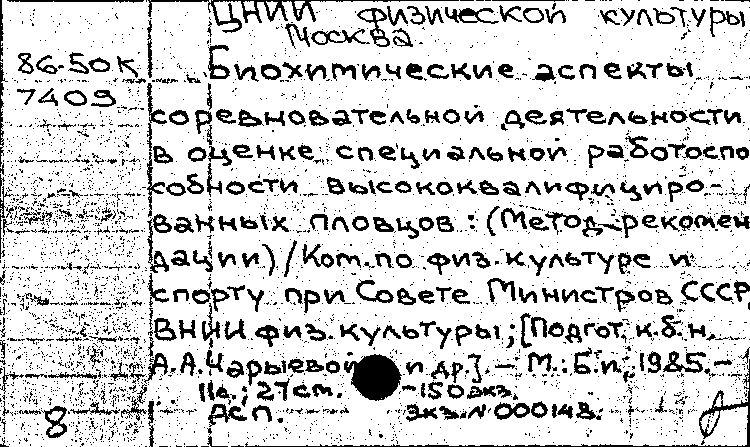 ЦНИИ физической культуры
Москва.
86-50к
Биохимические аспекты
7409
соревновательной деятельности
в оценке специальной работоспо
собности высококвалифициро-
ванных пловцов : (Метод. рекомен
дации) / Ком. по физ. культуре и
спорту при Совете Министров СССР
ВНИИ физ. культуры; [Подгот. к.б.н.
А.А.Чарыевой и др.]. – М.: Б.и., 1985. –
11с.; 27см. –150 экз.
ДСП. Экз. N 000148.
8